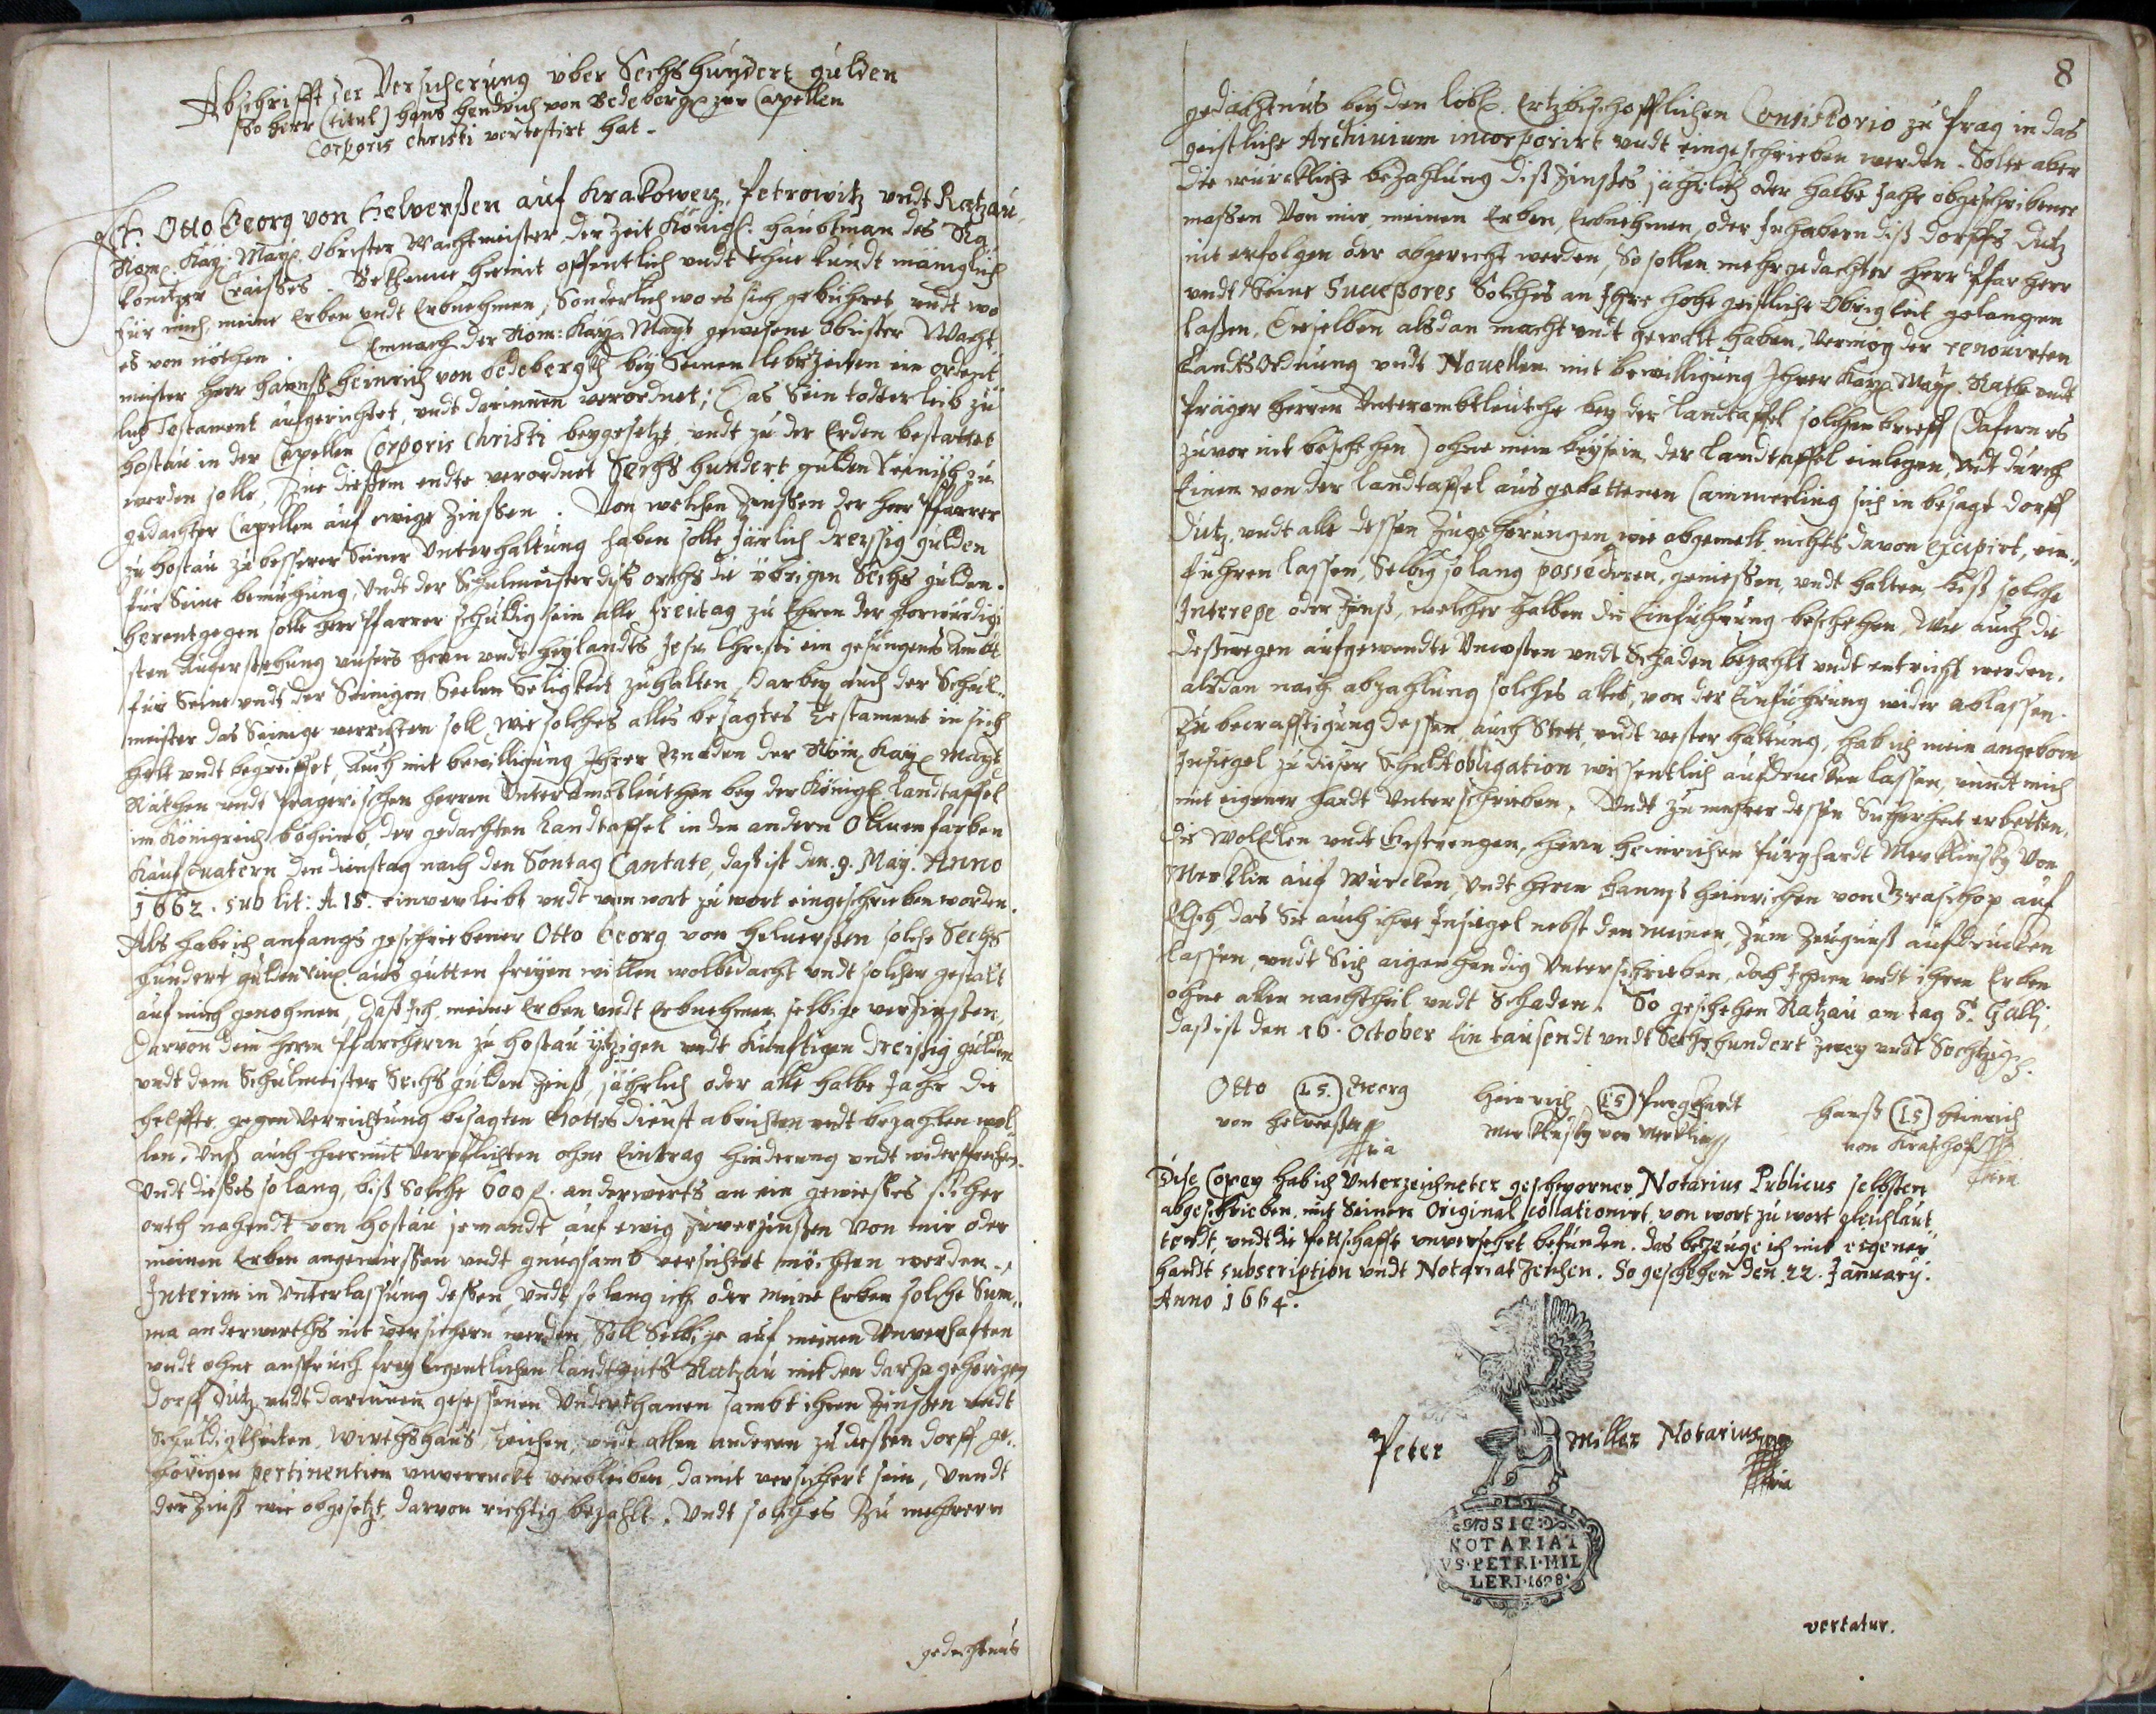 Abschrifft der Versicherung über Sechshundert gulden
so herr (titul) Hans Hendrich von Bedebergk zur Capellen
Corporis Christi vertestirt hat.
Ich Otto Georg von Helversen auf Krakowetz, Petrowitz undt Ratzau,
Röm. Kay. May. Obrister Wachtmeister der Zeit Königl. Haubtman des Ra¬
konitzer Craißes. Bekhenne hiermit offentlich undt thue kundt mäniglich
für mich, meine Erben undt Erbnehmen, Sonderlich wo es sich gebühret undt wo
es von nöthen. Demnach der Röm: Kay. Mayt. gewesene Obrister Wacht¬
meister Herr Hannß Heinrich von Bedebergkh bey Seinen lebszeiten ein ordent
lich Testament aufgerichtet, undt darinnen verordnet; Das Sein todter leib zu
Hostau in der Capellen Corporis Christi beygesetzt, undt zu der Erden bestattet
werden solle, Zue dießem endte verordnet Sechs hundert gulden Reinisch zu
gedachter Capellen auf ewige Zinßen. Von welchen Zinßen der Herr Pfarrer
zu Hostau zu besserer Seiner Unterhaltung haben solle järlich dreyssig gulden
für Seine bemühung, Undt der Schulmeister diß orths die übrigen Sechs gulden.
herentgegen solle herr Pfarrer schuldig sein alle Freitag zu Ehren der Hochwürdig
sten Auferstehung unsers herrn undt heylandts Jesu Christi ein gesungens Ambt
für Seine undt der Seinigen Seelen Seligkeit zuhalten, darbey auch der Schul¬
meister das Seinige verrichten soll, wie solches alles besagtes Testament in sich
helt undt begreiffet, Auch mit bewilligung Ihrer Gnaden der Röm. Kay. Mayt.
Räthen undt Pragerischen herren UnterAmbtleuthen bey der Königl. Landtaffel
im Königreich boheimb, der gedachten Landtaffel in den andern Oliuenfarben
Kaufquatern den dienstag nach den Sontag Cantate, das ist den 9. May. Anno
1662. sub lit: A 18. einverleibt undt von wort zu wort eingeschrieben worden.
Als habe ich anfangs geschriebener Otto Georg von Helverssen solche Sechs
hundert gulden Rein. aus gutten freyen willen wolbedacht undt solcher gestalt
auf mich genohmen, daß Ich, meine Erben undt Erbnehmer selbige verzinßen,
darvon dem herrn Pfarherrn zu Hostau yetzigen undt künftigen dreissig gulden
undt dem Schulmeister Sechs gulden Zinß, jährlich oder alle halbe Jahr die
helffte, gegen Verrichtung besagten Gottes dienst abrichten undt bezahlen wol¬
len. Unß auch hiermit Verpflichten ohne Eintrag hinderung undt widersprechen.
Undt dieses solang, biß Solche 600 f. anderwerts an ein gewießes sicher
orth nahendt von Hostau jemandt auf ewig zuverzinßen von mir oder
meinen Erben angewießen undt gnugsamb versichert möchten werden.
Interim in Unterlassung deßen, undt so lang ich oder meine Erben solche Sum¬
ma anderwerths nit versichern werden, Soll Selbige auf meinen Unverhaften
undt ohne anspruch frey eigentlichen landtguts Ratzau mit den darzu gehörigen
dorff Dutz, undt darinnen gesessenen Underthanen sambt ihren Zinßen undt
Schuldigkheiten, Wirthshaus, Teichen, undt allen anderen zu dießen dorff ge¬
hörigen pertinentien unverruckt verbleiben, damit versichert sein, Undt
der Zinß wie obgesetzt, darvon richtig bezahlt. Undt solches Zu mehrern
gedechtnus
8
gedächtnus bey den löbl. Ertzbischofflichen Consistorio zu Prag in das
geistliche Archiuium incorporirt undt eingeschrieben werden. Solte aber
die würckliche bezahlung diß Zinßes jährlich oder halbe Jahr obgeschribener
massen Von mir, meinen Erben, Erbnehmen, oder Inhabern diß dorffs Dutz
nit erfolgen oder abgericht werden, So sollen mehrgedachter Herr Pfarherr
undt Seine Successores Solches an Ihre hohe geistliche Obrigkeit gelangen
laßen, Dieselben alsdan macht undt gewalt haben, Vermög der renouirten
Landtsordnung undt Nouellen mit bewilligung Ihrer Kay. May. Räthe undt
Präger herren Unterambtleuthe bey der landtaffel solchen brieff (dafern es
zuvor nit beschehen) ohne mein beysein der landtaffel einlegen, Undt durch
Einen von der landtaffel ausgebettenen Cammerling sich in besagt dorff
Dutz, undt alle dessen Zugehörungen, wie obgemelt nichts davon excipirt, ein¬
führen lassen, Selbig so lang possediren, geniessen, undt halten, biß solche
Interesse oder Zinß, welcher halben die Einführung beschehen, Wie auch die
deßwegen aufgewendte Unkosten undt Schaden bezahlt undt entricht werden.
alsdan nach abzahlung solches alles, von der Einführung wider ablassen.
Zu becrafftigung dessen, auch Stett, undt vester haltung, hab ich mein angeborn
Insiegel zu dieser Schuldtobligation wissentlich aufdrucken lassen, undt mich
mit eigener handt Unterschrieben. Undt zu mehrer dessen Sicherheit erbetten,
die WolEdlen undt Gestrengen, herrn Heinrichen Purghardt Merklinsky Von
Merklin auf Wurcken, Undt Herrn Hannß Heinrichen von Kraschop auf
Elsch, das Sie auch ihre Insiegel nebst den meinen, Zum Zeugnuß aufdrucken
lassen, undt Sich aigenhendig Unterschrieben, doch Ihnen undt ihren Erben
ohne allen nachtheil undt Schaden. So geschehen Ratzau am tag S. Galli,
daß ist den 16. October Ein tausendt undt Sechshundert zwey undt Sechtzig.
Otto (L.S.) Georg
von Helverßen
mpria
Heinrich (L.S) Purghardt
Merklinsky von Merklin
Hanß (L.S) Heinrich
von Kraschop
mpria
Dise Copey hab ich Unterzeichneter geschworner Notarius Publicus selbsten
abgeschrieben, mit Seinen Original collationirt, von wort zu wort gleichlaut¬
tendt, undt die pettschafft unversehrt befunden. Das bezeuge ich mit eigener
handt subscription undt Notariat Zeichen. So geschehen den 22. January.
Anno 1664.
Peter Miller Notarius
mpria
SIG
NOTARIAT
VS·PETRI·MIL
LERI·
vertatur.